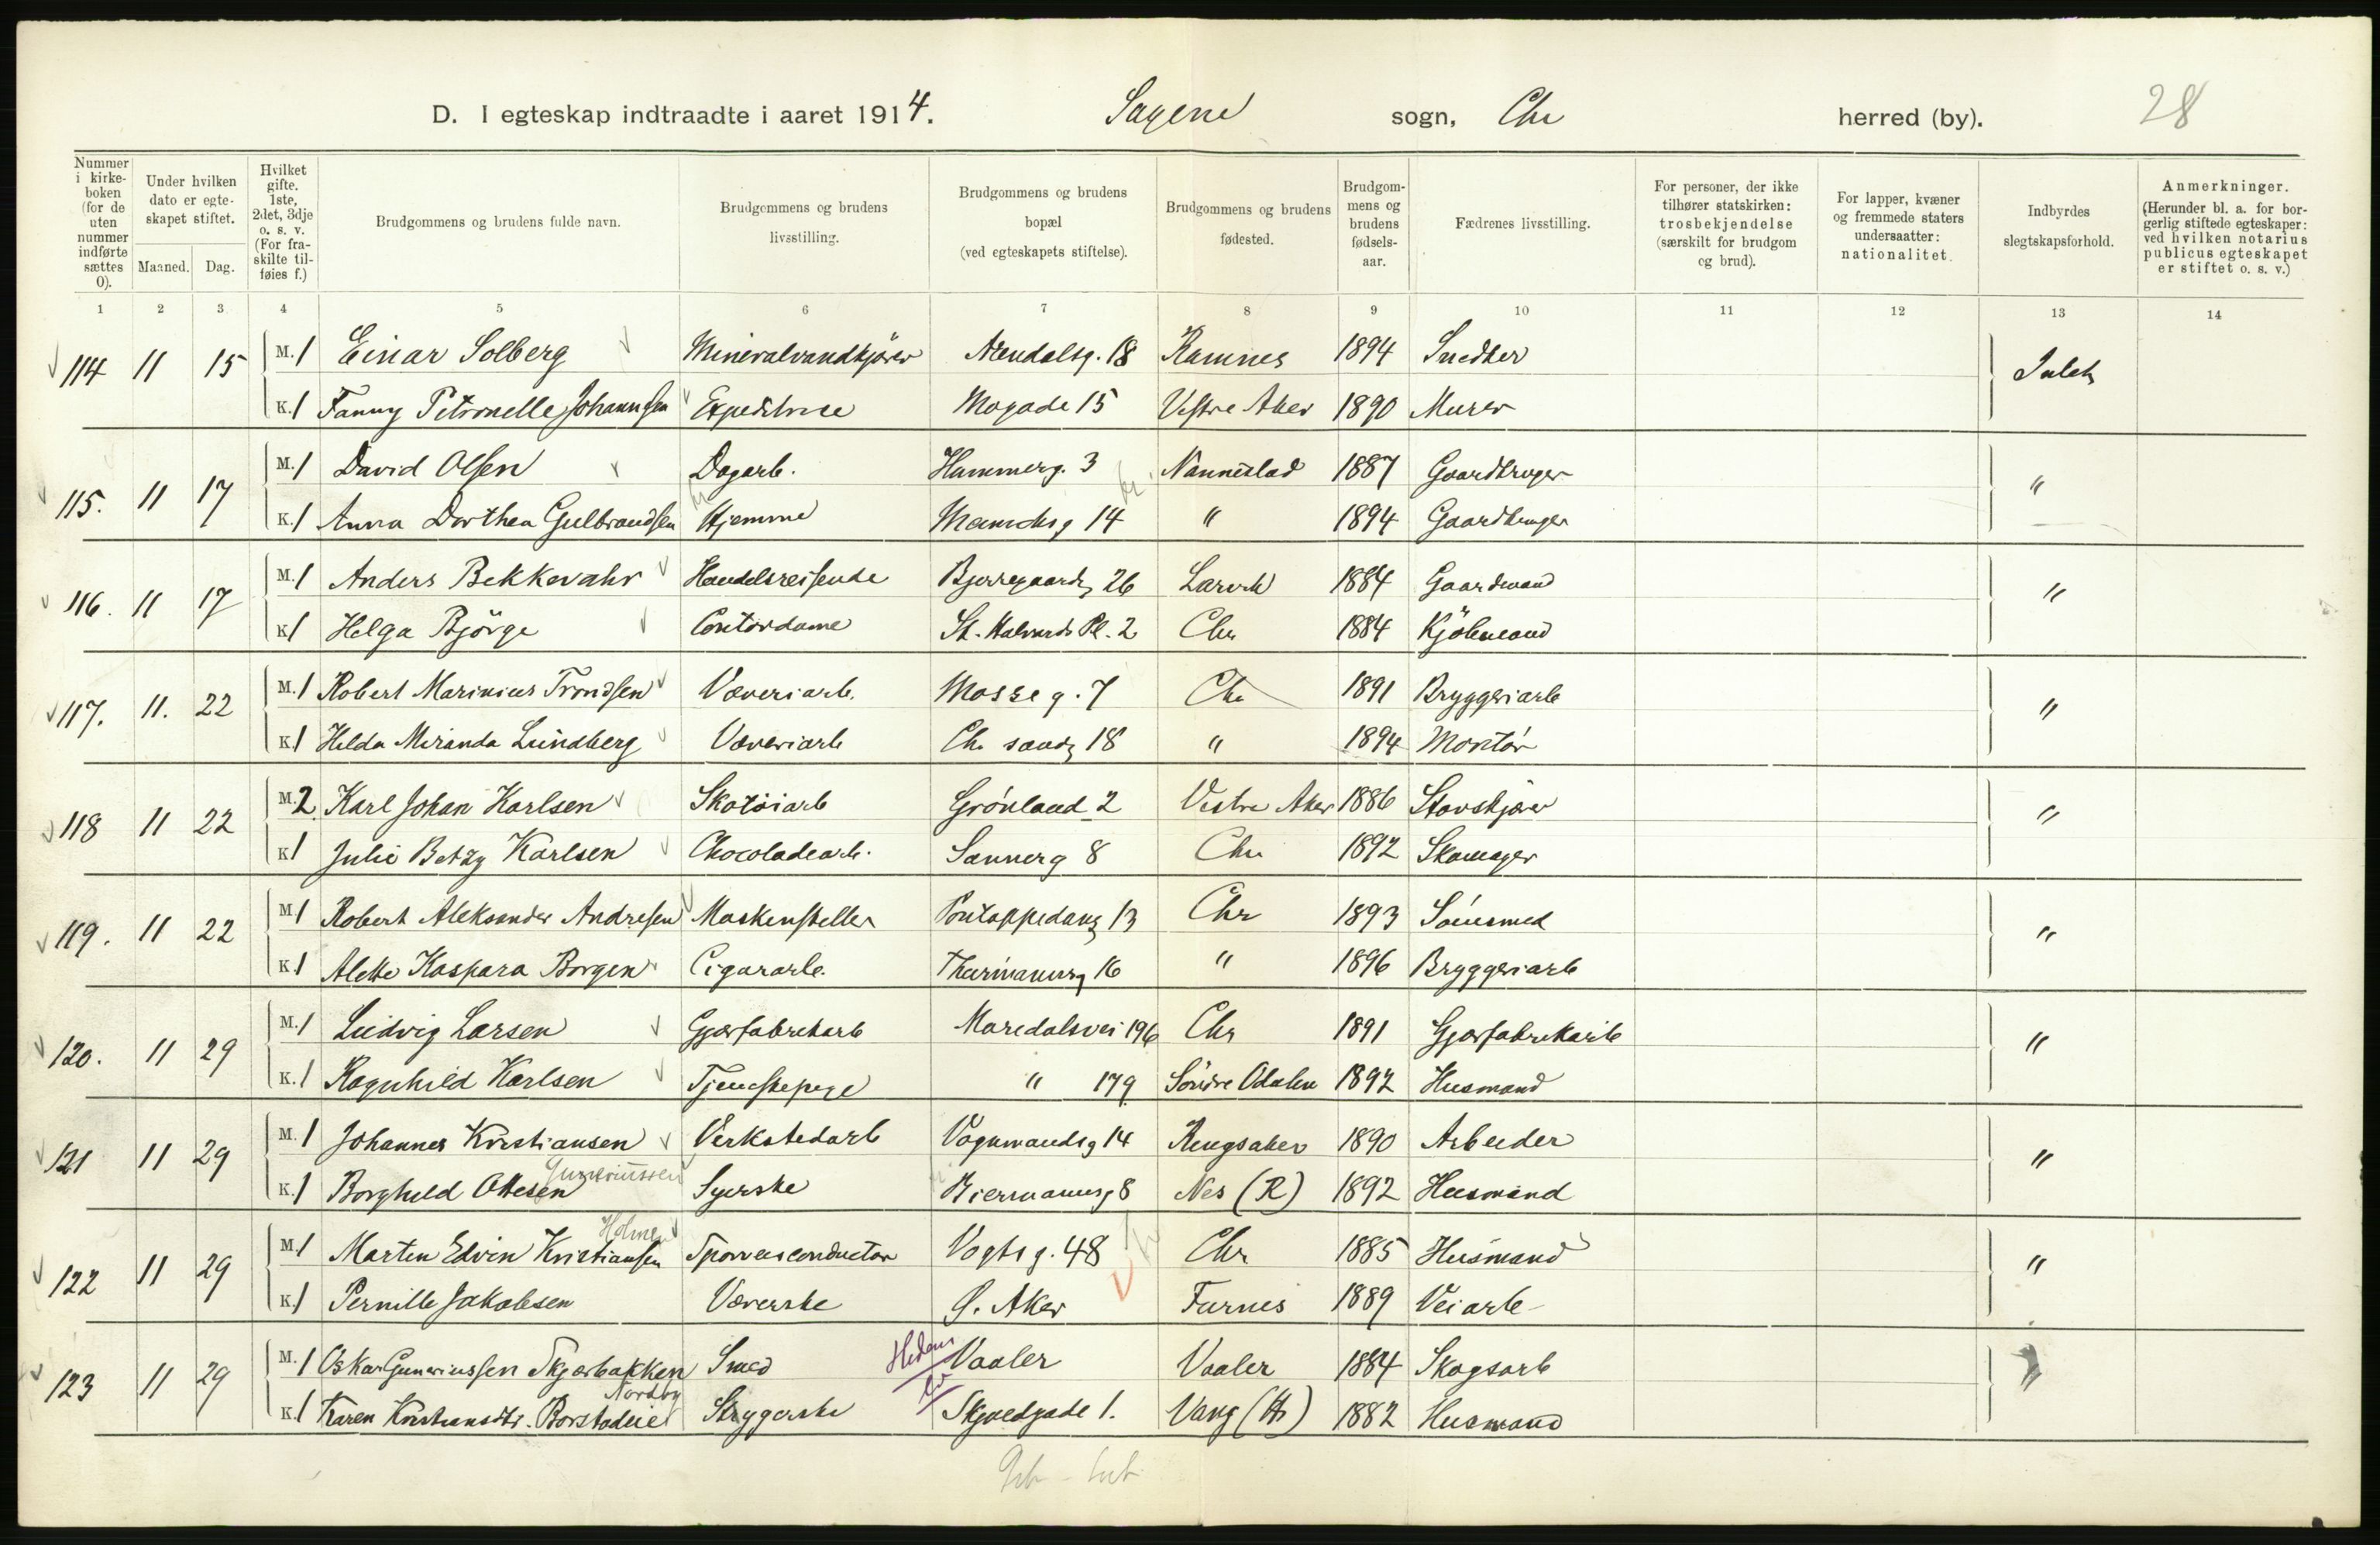 D. I egteskap indtraadte i aaret 1914. Sagene sogn, Chr herred (by). 28
Nummer i kirkeboken (for de uten nummer indførte sættes 0). Under hvilken dato er egteskapet stiftet. Maaned. Dag. Hvilket gifte. 1ste, 2det, 3dje o. s. v. (For fraskilte tilføies f.) Brudgommens og brudens fulde navn. Brudgommens og brudens livsstilling. Brudgommens og brudens bopæl (ved egteskapets stiftelse). Brudgommens og brudens fødested. Brudgommens og brudens fødselsaar. Fædrenes livsstilling. For personer, der ikke tilhører statskirken: trosbekjendelse (særskilt for brudgom og brud). For lapper, kvæner og fremmede staters undersaatter: nationalitet. Indbyrdes slegtskapsforhold. Anmerkninger. (Herunder bl. a. for borgerlig stiftede egteskaper: ved hvilken notarius publicus egteskapet er stiftet o. s. v.)
1 2 3 4 5 6 7 8 9 10 11 12 13 14
114 11 15 M. 1 Einar Solberg Mineralvandkjører Arendalsg. 18 Ramnes 1894 Snedker Intet
K. 1 Fanny Petronelle Johannsen Expeditrice Mogade 15 Vestre Aker 1890 Murer
115. 11 17 M. 1 David Olsen Dagarb. Hammerg. 3 Nannestad 1887 Gaardbruger "
K. 1 Anna Dorthea Gulbrandsen Hjemme 14 " 1894 Gaardbruger
116. 11 17 M. 1 Anders Bekkevahr Handelsreisende Bjerregaardsg 26 Larvik 1884 Gaardmand "
K 1 Helga Björge Contordame St. Halvards Pl. 2 Chr 1884 Kjöbmand
117. 11. 22 M. 1 Robert Marinius Trondsen Væveriarb. Mosseg. 7 Chr 1891 Bryggeriarb "
K 1 Hilda Miranda Lundberg Væveriarb Chr sandg 18 " 1894 Montör
118 11 22 M. 2 Karl Johan Karlsen Skotöiarb Grönland 2 Vestre Aker 1886 Stovskjører "
K 1 Julie Betzy Karlsen Chocoladearb. Sannerg 8 Chr 1892 Skomager
119. 11 22 M 1 Robert Aleksander Andresen Maskensteller Pontoppedang 13 Chr 1893 "
K. 1 Alette Kaspara Borgen Cigararb. Thurmannsg 16 " 1896 Bryggeriarb
120. 11 29 M. 1 Ludvig Larsen Gjærfabrikarb Maredalsvei 196 Chr 1891 Gjærfabrikarb "
K. 1 Ragnhild Karlsen Tjenestepige " 179 Söndre Odalen 1892 Husmand
121 11 29 M. 1 Johannes Kristiansen Verkstedarb Vognmandsg 14 Ringsaker 1890 Arbeider "
Guneriussen
K. 1 Borghild Ottesen Syerske Biermannsg 8 Nes (R) 1892 Husmand
Holmen
122 11 29 M 1 Martin Edvin Kristiansen Sporveisconductør Vogtsg. 48 Chr 1885 Husmand "
K. 1 Pernille Jakobsen Væverske Ö. Aker Furnes 1889 Veiarb
123 11 29 M. 1 Oskar Gunerinssen Skjærbakken Smed Hedem Vaaler Vaaler 1884 Skogsarb "
Nordby
K. 1 Karen Kristiansdtr. Borstadeie Strygerske Skjoldgade 1. Vang (H) 1882 Husmand